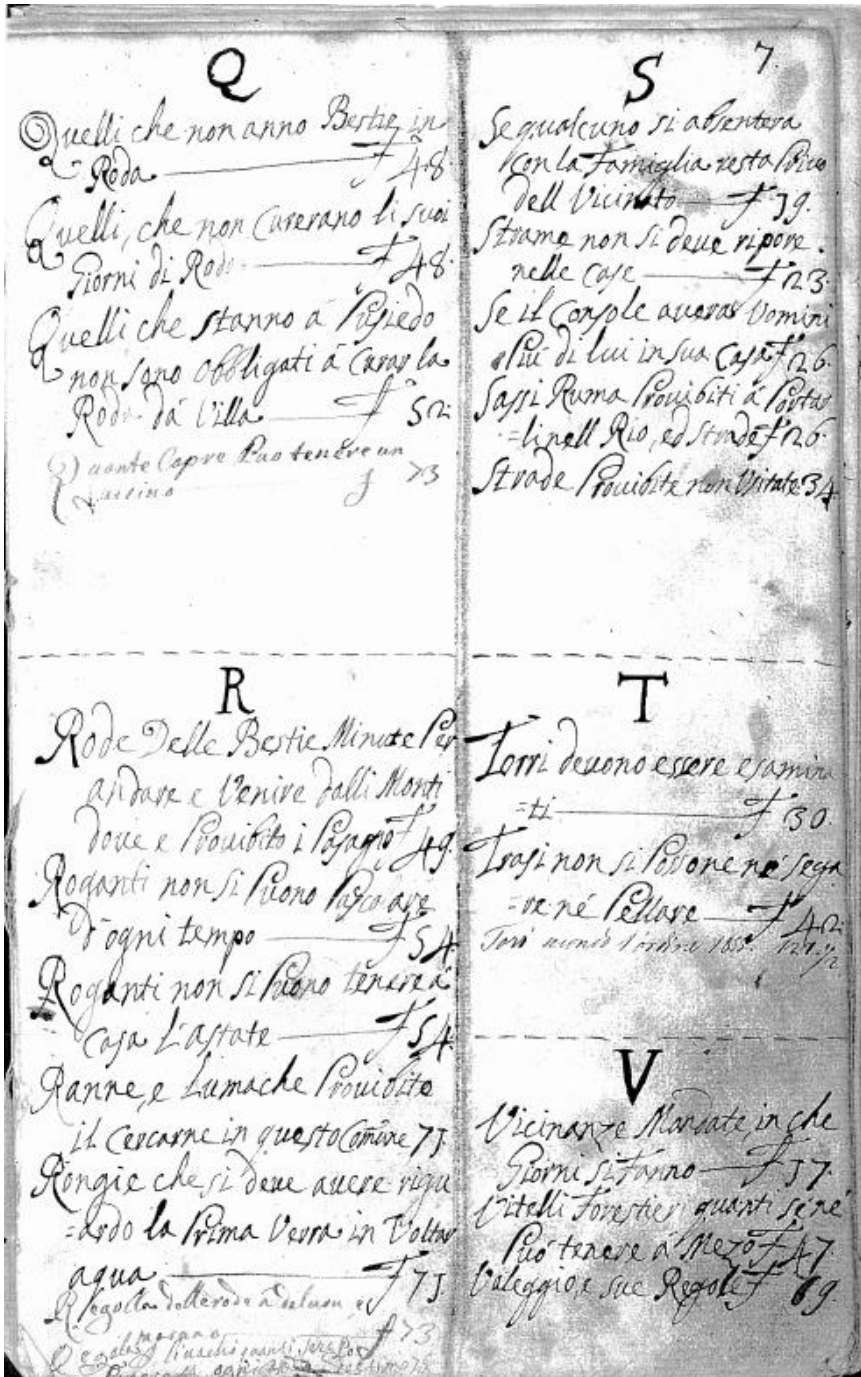 Q
Quelli che non anno Bestie in
Roda f 48.
Quelli, che non Curerano li suoi
Giorni di Roda f 48.
Quelli che stanno á
non sono obbligati á Curar la
Roda dá Villa f 52.
Quante Capre Puo tenere un
f 73
R
Rode Delle Bestie Minute Per
andare e Venire dalli Monti
dove e Prouibito i f 49.
Roganti non si Puono Pascoare
d'ogni tempo f 54
Roganti non si Puono tenere á
Casa L'astate f 54.
Ranne, e Lumache Prouibito
il Cercarne in questo Comune 71
Rongie che si deve avere rigu
=ardo la Prima Verra in Voltar
aqua f 71
Regolla delle rode
f 73
7.
S
Se qualcuno si absentera
Con la Famiglia resta Privo
dell Vicinato f 19.
Strame non si deve ripore
nelle Case f 23.
Se il Console averas Uomini
Piú di lui in sua Casa f 26.
Sassi Ruma Prouibiti á Portar
=li nell Rio, ed Strade f 26.
Strade Prouibite non Usitate 34
T
Torri devono essere esamina
=ti f 30.
Trasi non si Povone né sega
=re né Pellare f 42.
V
Vicinanze Mandate, in che
Giorni si Fanno f 17.
Vitelli Forestier quanti se né
Puó tenere á Mezo f 47.
Valeggio, e sue Regole f 69